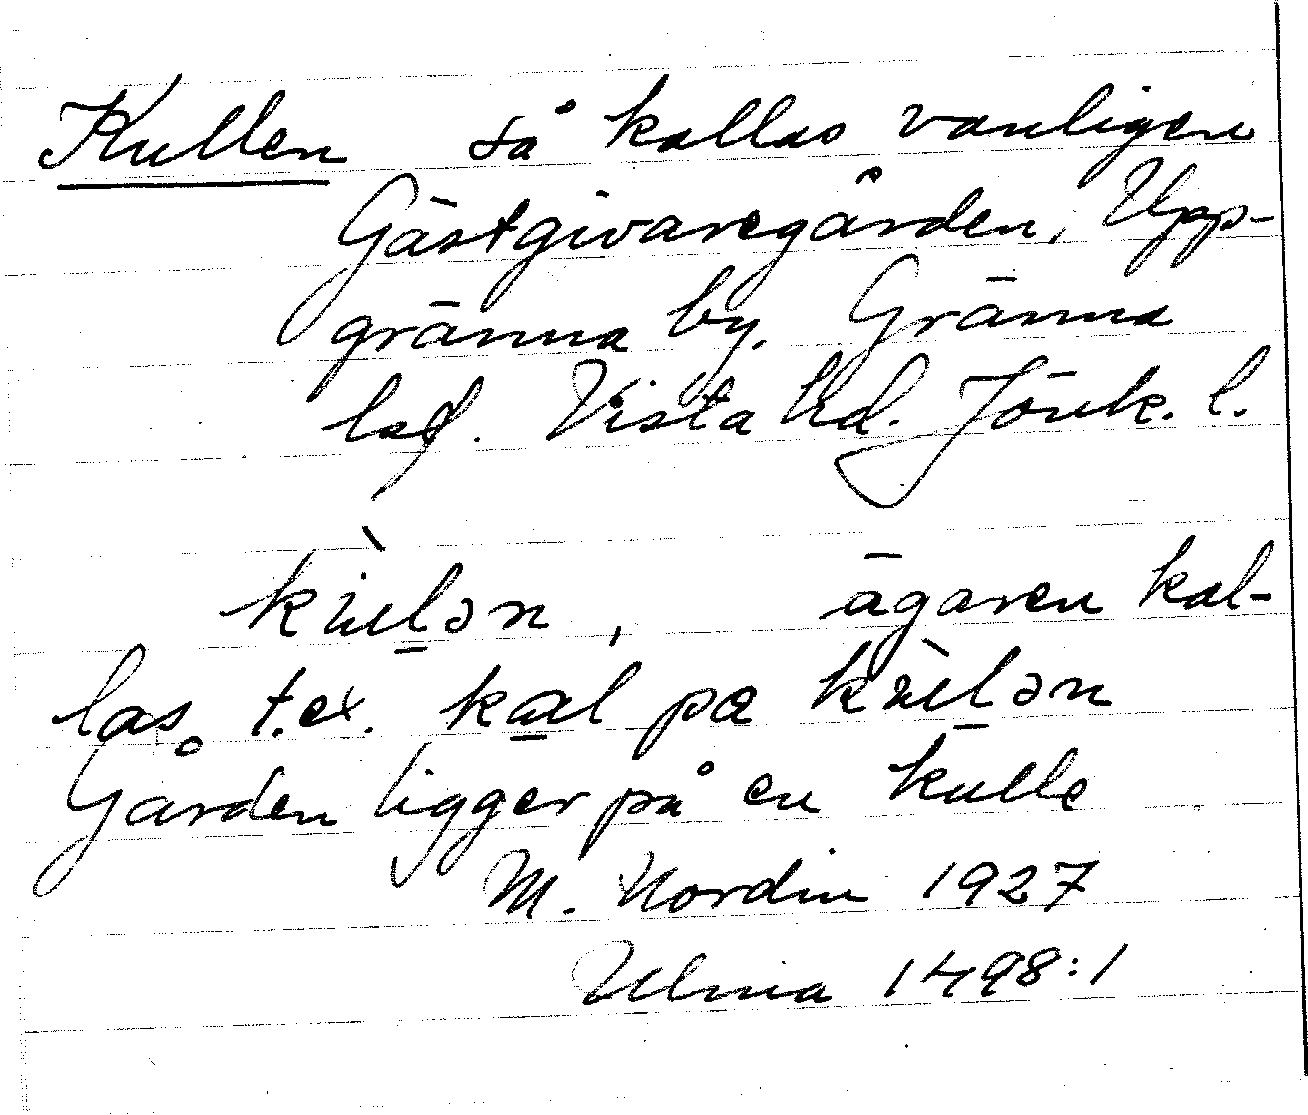 Kullen så kallas vanligen
Gästgivaregården, Upp-
gränna by. Gränna
lsf. Vista hd. Jönk. l.
kùl̲ən, ägaren kal-
las t.ex. ka̲l pa kùl̲ən
Gården ligger på en kulle
M. Nordin 1927
Ulma 1498:1